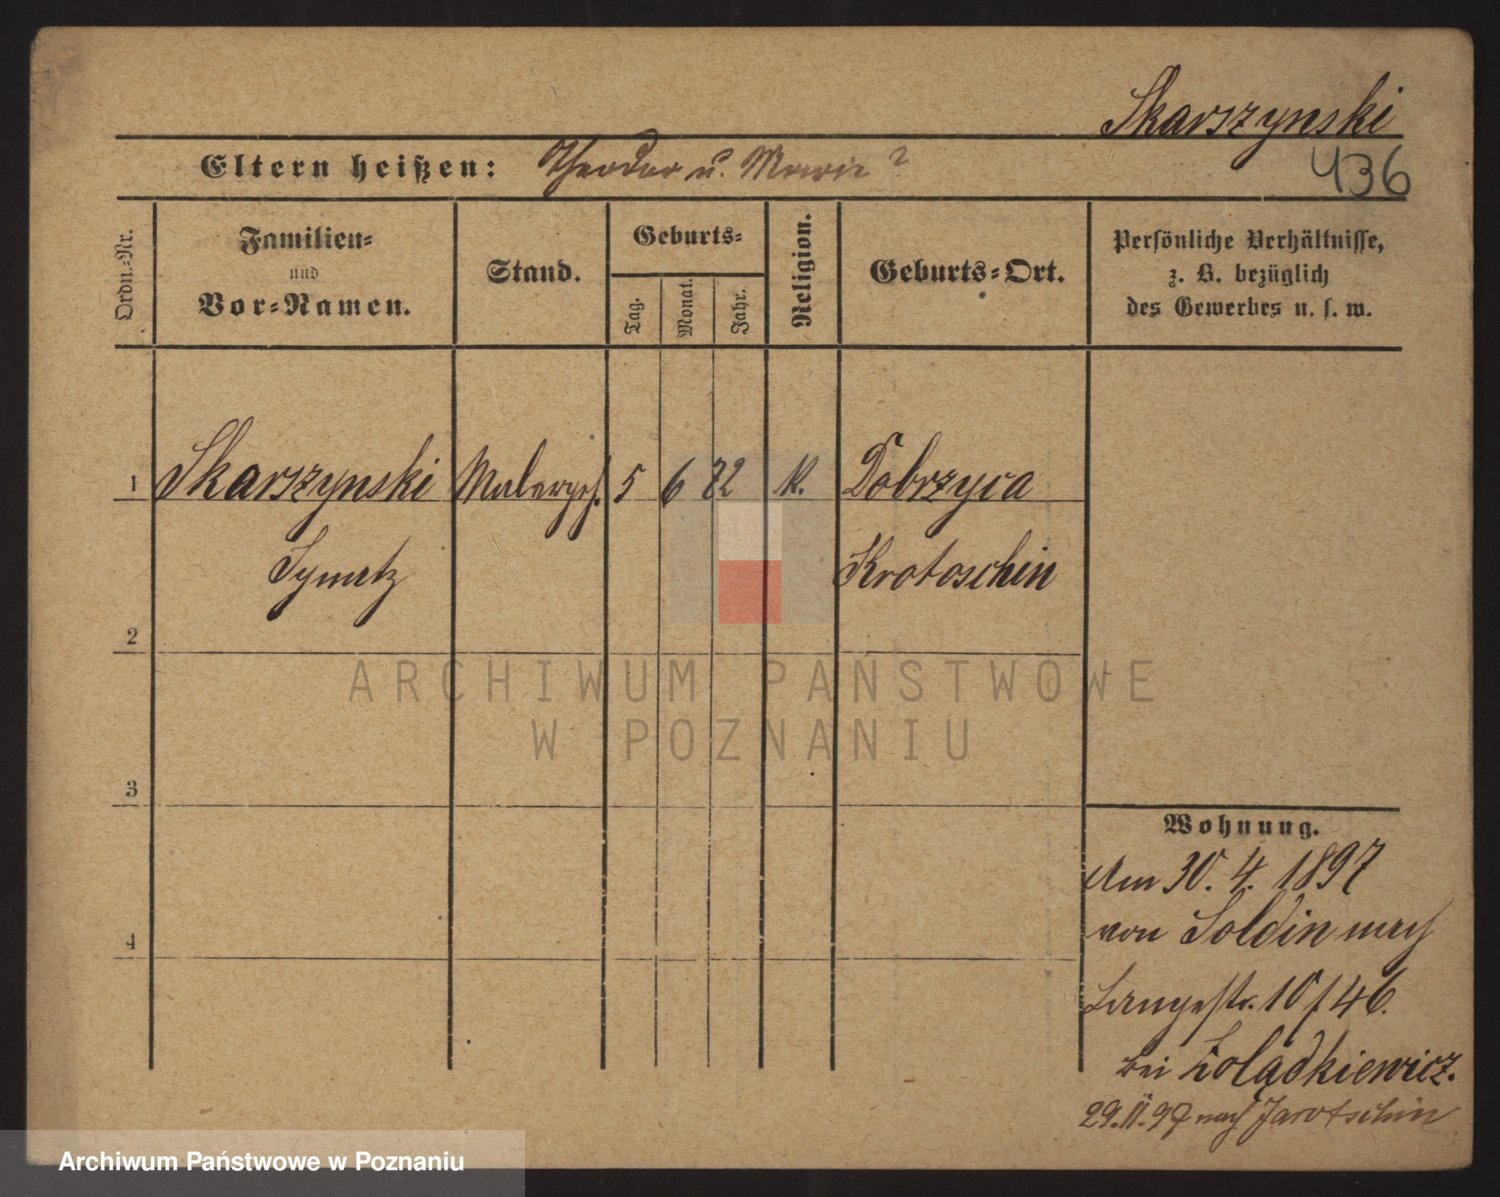 Skarszynski
Eltern heißen: Theodor u. Marie ?
436
Ordn.-Nr.
Familien-
und
Vor-Namen.
Stand.
Geburts-
Tag.
Monat.
Jahr.
Religion.
Geburts-Ort.
Persönliche Verhältnisse,
z. B. bezüglich
des Gewerbes u. s. w.
1 Skarszynski Malergeh. 5 6 72 K. Dobrzyca
Ignatz Krotoschin
2
3
4
ARCHIWUM PAŃSTWOWE
W POZNANIU
Wohnung.
Am 30. 4. 1897
von Soldin nach
Langestr. 10/46.
bei Zoladkiewicz.
29. 11. 97 nach Jarotschin
Archiwum Państwowe w Poznaniu